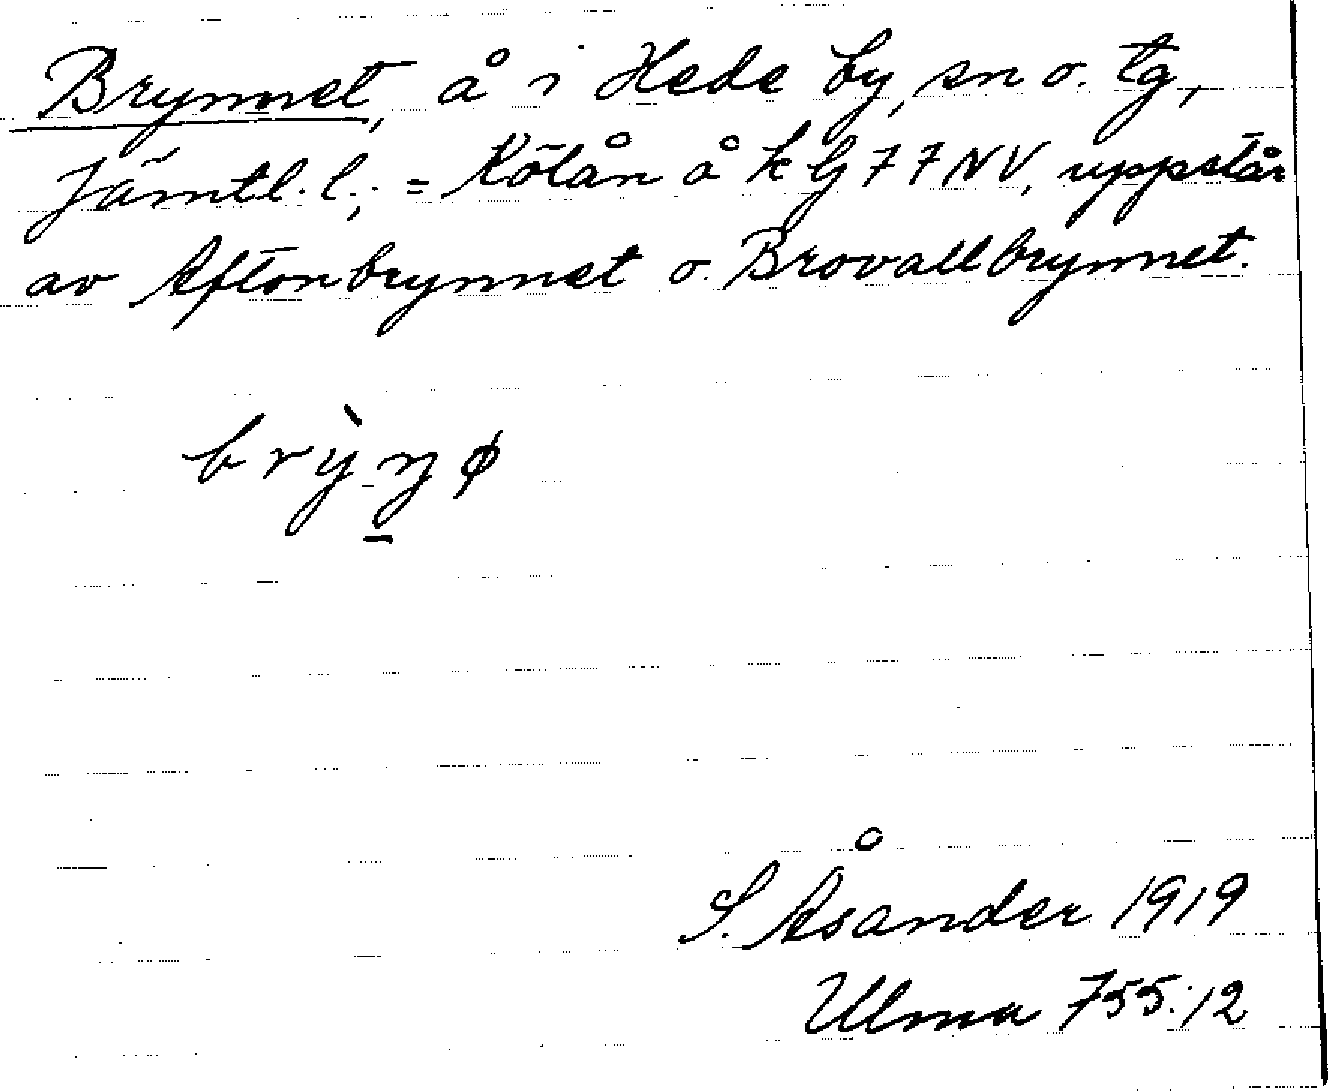 Brynnet, å i Hede by, sn o. tg,
Jämtl. l.; = Kölån å k bl 77 NV, uppstår
av Aftonbrynnet o. Brovallbrynnet.
S. Åsander 1919
Ulma 755:12